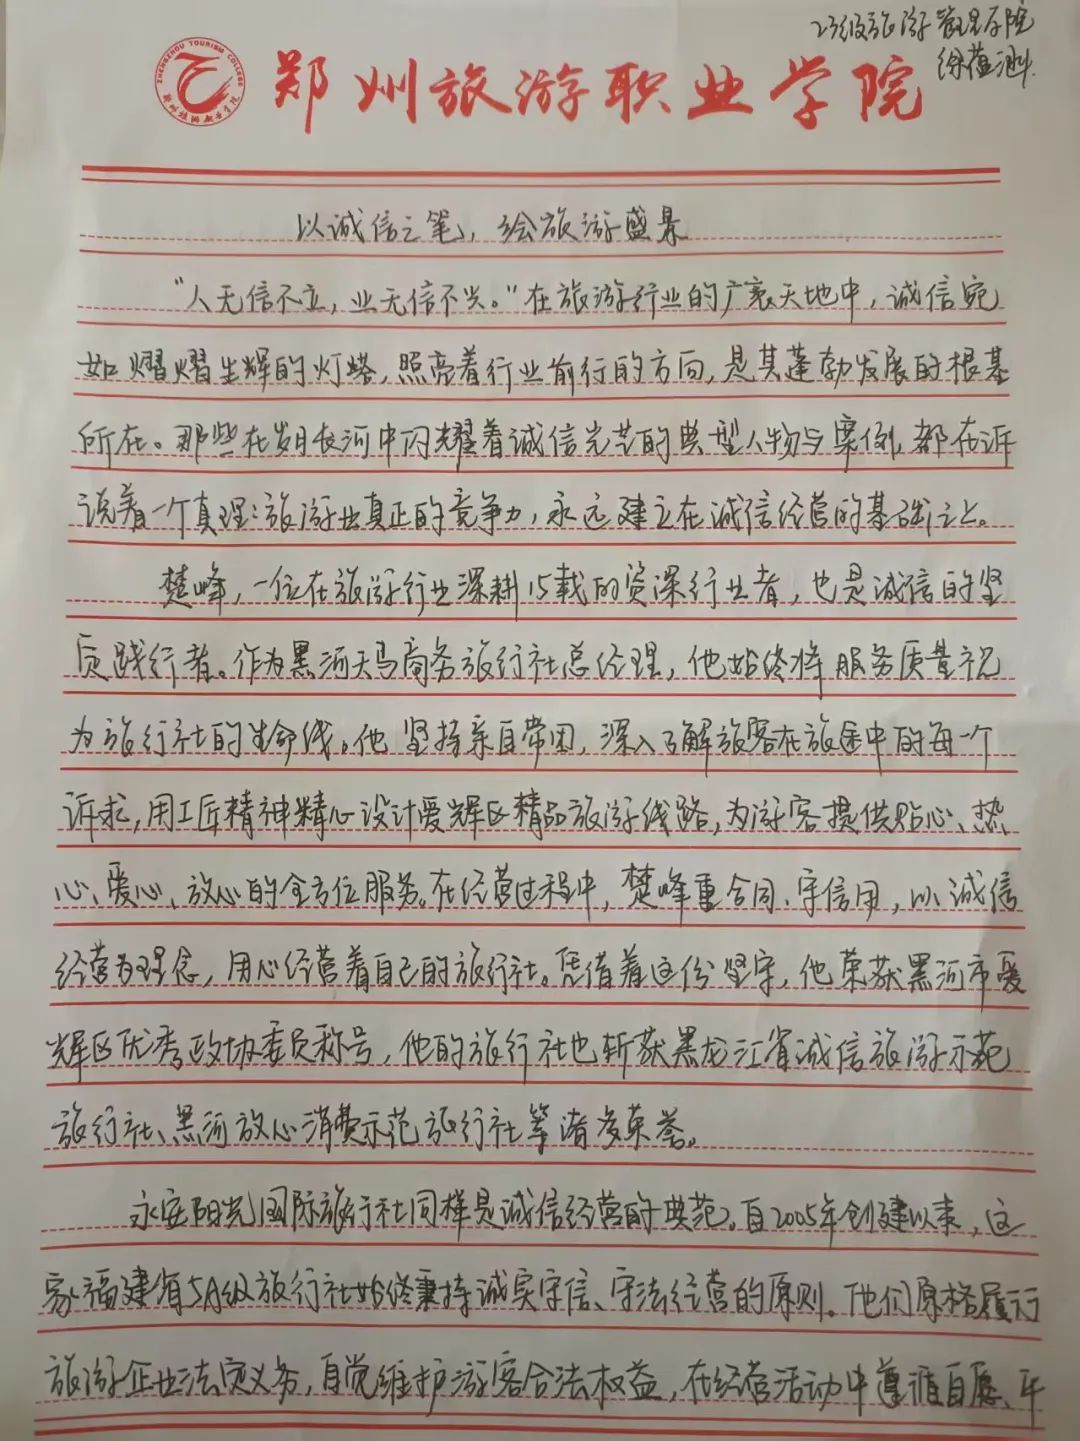 23级旅游管理学院
徐蕴
ZHENGZHOU TOURISM COLLEGE
郑州旅游职业学院
郑州旅游职业学院
以诚信之笔，绘旅游盛景
“人无信不立，业无信不兴。”在旅游行业的广袤天地中，诚信宛
如熠熠生辉的灯塔，照亮着行业前行的方向，是其蓬勃发展的根基
所在。那些在岁月长河中闪耀着诚信光芒的典型人物与案例，都在诉
说着一个真理：旅游业真正的竞争力，永远建立在诚信经营的基础之上。
楚峰，一位在旅游行业深耕15载的资深行业者，也是诚信的坚
定践行者。作为黑河天马商务旅行社总经理，他始终将服务质量视
为旅行社的生命线。他坚持亲自带团，深入了解旅客在旅途中的每一个
诉求，用工匠精神精心设计爱辉区精品旅游线路，为游客提供贴心、热
心、爱心、放心的全方位服务。在经营过程中，楚峰重合同、守信用，以诚信
经营为理念，用心经营着自己的旅行社。凭借着这份坚守，他荣获黑河市爱
辉区优秀政协委员称号，他的旅行社也斩获黑龙江省诚信旅游示范
旅行社、黑河放心消费示范旅行社等诸多荣誉。
永安阳光国际旅行社同样是诚信经营的典范。自2005年创建以来，这
家福建省5A级旅行社始终秉持诚实守信、守法经营的原则。他们严格履行
旅游企业法定义务，自觉维护游客合法权益，在经营活动中遵循自愿、平